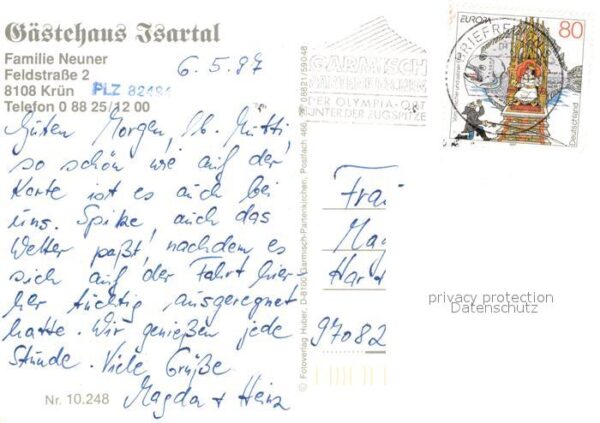 Gästehaus Isartal
Familie Neuner
Feldstraße 2
8108 Krün PLZ 82494
Telefon 0 88 25/12 00
6.5.97
Guten Morgen, lb. Mutti,
so schön wie auf der
Karte ist es auch bei
uns. Spitze, auch das
Wetter paßt, nachdem es
sich auf der Fahrt hier-
her tüchtig ausgeregnet
hatte. Wir genießen jede
Stunde. Viele Grüße
Magda + Heinz
Nr. 10.248
© Fotoverlag Huber, D-8100 Garmisch-Partenkirchen, Postfach 466, 08821/59048
GARMISCH
PARTENKIRCHEN
DER OLYMPIA-ORT
UNTER DER ZUGSPITZE
BRIEFZ
EUROPA
80
Deutschland
Frau
Mag
Har
97082
privacy protection
Datenschutz